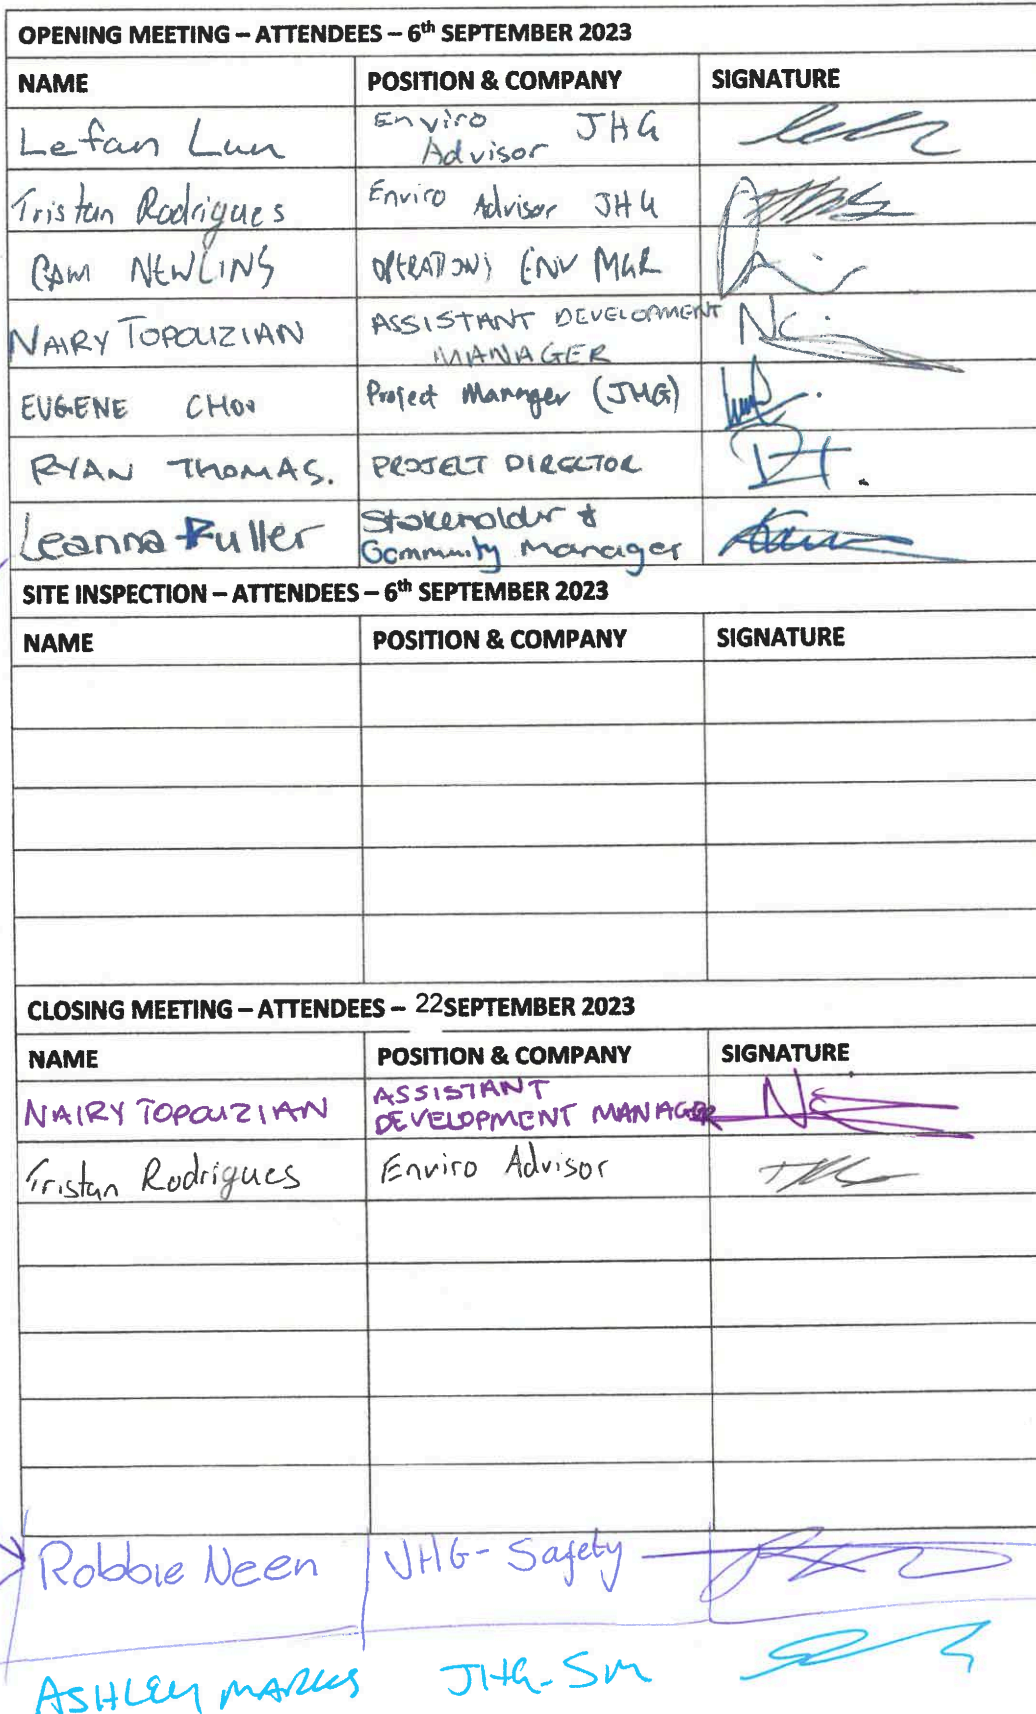 OPENING MEETING – ATTENDEES – 6th SEPTEMBER 2023
NAME POSITION & COMPANY SIGNATURE
Lefan Lun Enviro Advisor JHG
Tristan Rodrigues Enviro Advisor JHG
CAM NEWLING OPERATIONS ENV MGR
NAIRY TOPOUZIAN ASSISTANT DEVELOPMENT
MANAGER
EUGENE CHOO Project Manager (JHG)
RYAN THOMAS. PROJECT DIRECTOR
Leanna Fuller Stakeholder &
Community Manager
SITE INSPECTION – ATTENDEES – 6th SEPTEMBER 2023
NAME POSITION & COMPANY SIGNATURE
CLOSING MEETING – ATTENDEES – 22 SEPTEMBER 2023
NAME POSITION & COMPANY SIGNATURE
NAIRY TOPOUZIAN ASSISTANT
DEVELOPMENT MANAGER
Tristan Rodrigues Enviro Advisor
Robbie Neen JHG - Safety
ASHLEY MARKS JHG - SM